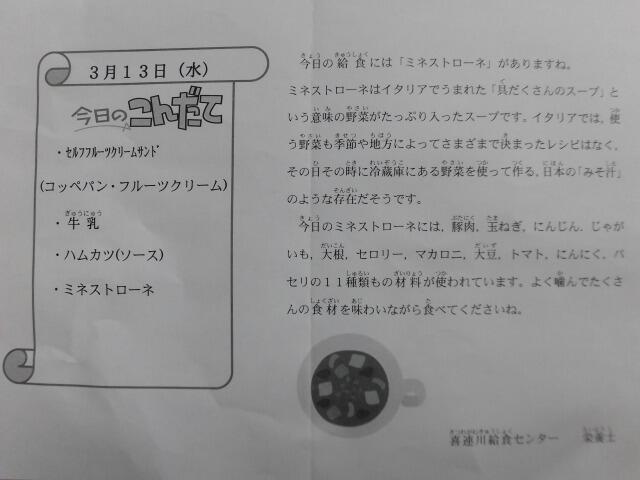 3月13日（水）
今日のこんだて
・セルフフルーツクリームサンド
(コッペパン・フルーツクリーム)
・牛乳
・ハムカツ(ソース)
・ミネストローネ
今日の給食には「ミネストローネ」がありますね。
ミネストローネはイタリアでうまれた「具だくさんのスープ」と
いう意味の野菜がたっぷり入ったスープです。イタリアでは，使
う野菜も季節や地方によってさまざまで決まったレシピはなく，
その日その時に冷蔵庫にある野菜を使って作る，日本の「みそ汁」
のような存在だそうです。
今日のミネストローネには，豚肉，玉ねぎ，にんじん，じゃが
いも，大根，セロリー，マカロニ，大豆，トマト，にんにく，パ
セリの１１種類もの材料が使われています。よく噛んでたくさ
んの食材を味わいながら食べてくださいね。
喜連川給食センター　栄養士